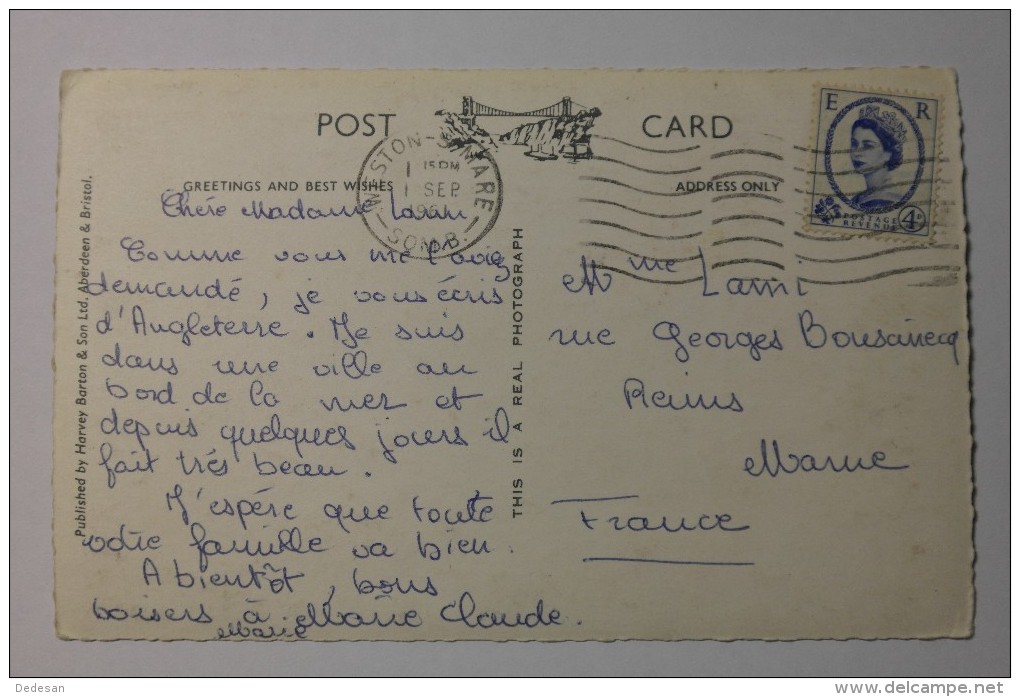 POST CARD
GREETINGS AND BEST WISHES
ADDRESS ONLY
WESTON-S-MARE
15PM
1 SEP
SOM.B.
E R
POSTAGE
REVENUE
4D
Chère Madame Lami
Comme vous me l'aviez
demandé, je vous écris
d'Angleterre. Je suis
dans une ville au
bord de la mer et
depuis quelques jours il
fait très beau.
J'espère que toute
votre famille va bien.
A bientôt, bons
baisers à Marie Claude.
Marie
Published by Harvey Barton & Son Ltd. Aberdeen & Bristol.
THIS IS A REAL PHOTOGRAPH
Mme Lami
rue Georges
Reims
Marne
France
Dedesan
www.delcampe.net